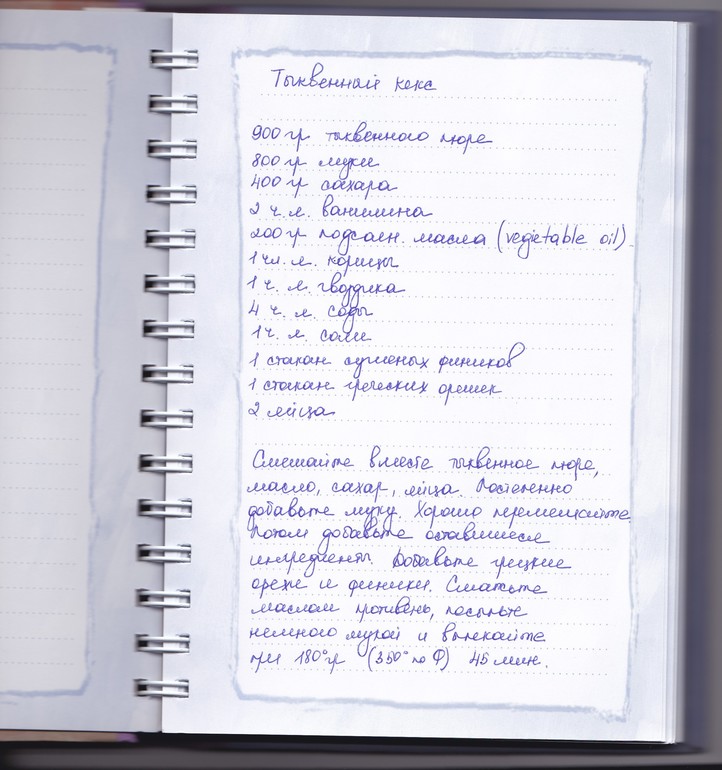 Тыквенный кекс
900 гр тыквенного пюре
800 гр муки
400 гр сахара
2 ч. л. ванилина
200 гр подсолн. масла (vegietable oil).
1 чл. л. корицы
1 ч. л. гвоздика
4 ч. л. соды
1 ч. л. соли
1 стакан сушеных фиников
1 стакан греческих орешек
2 яйца
Смешайте вместе тыквенное пюре,
масло, сахар, яйца. Постепенно
добавьте муку. Хорошо перемешайте.
Потом добавьте оставшиеся
ингредиенты. Добавьте грецкие
орехи и финики. Смажьте
маслом противень, посыпьте
немного мукой и выпекайте
при 180° гр (350° по Ф) 45 мин.